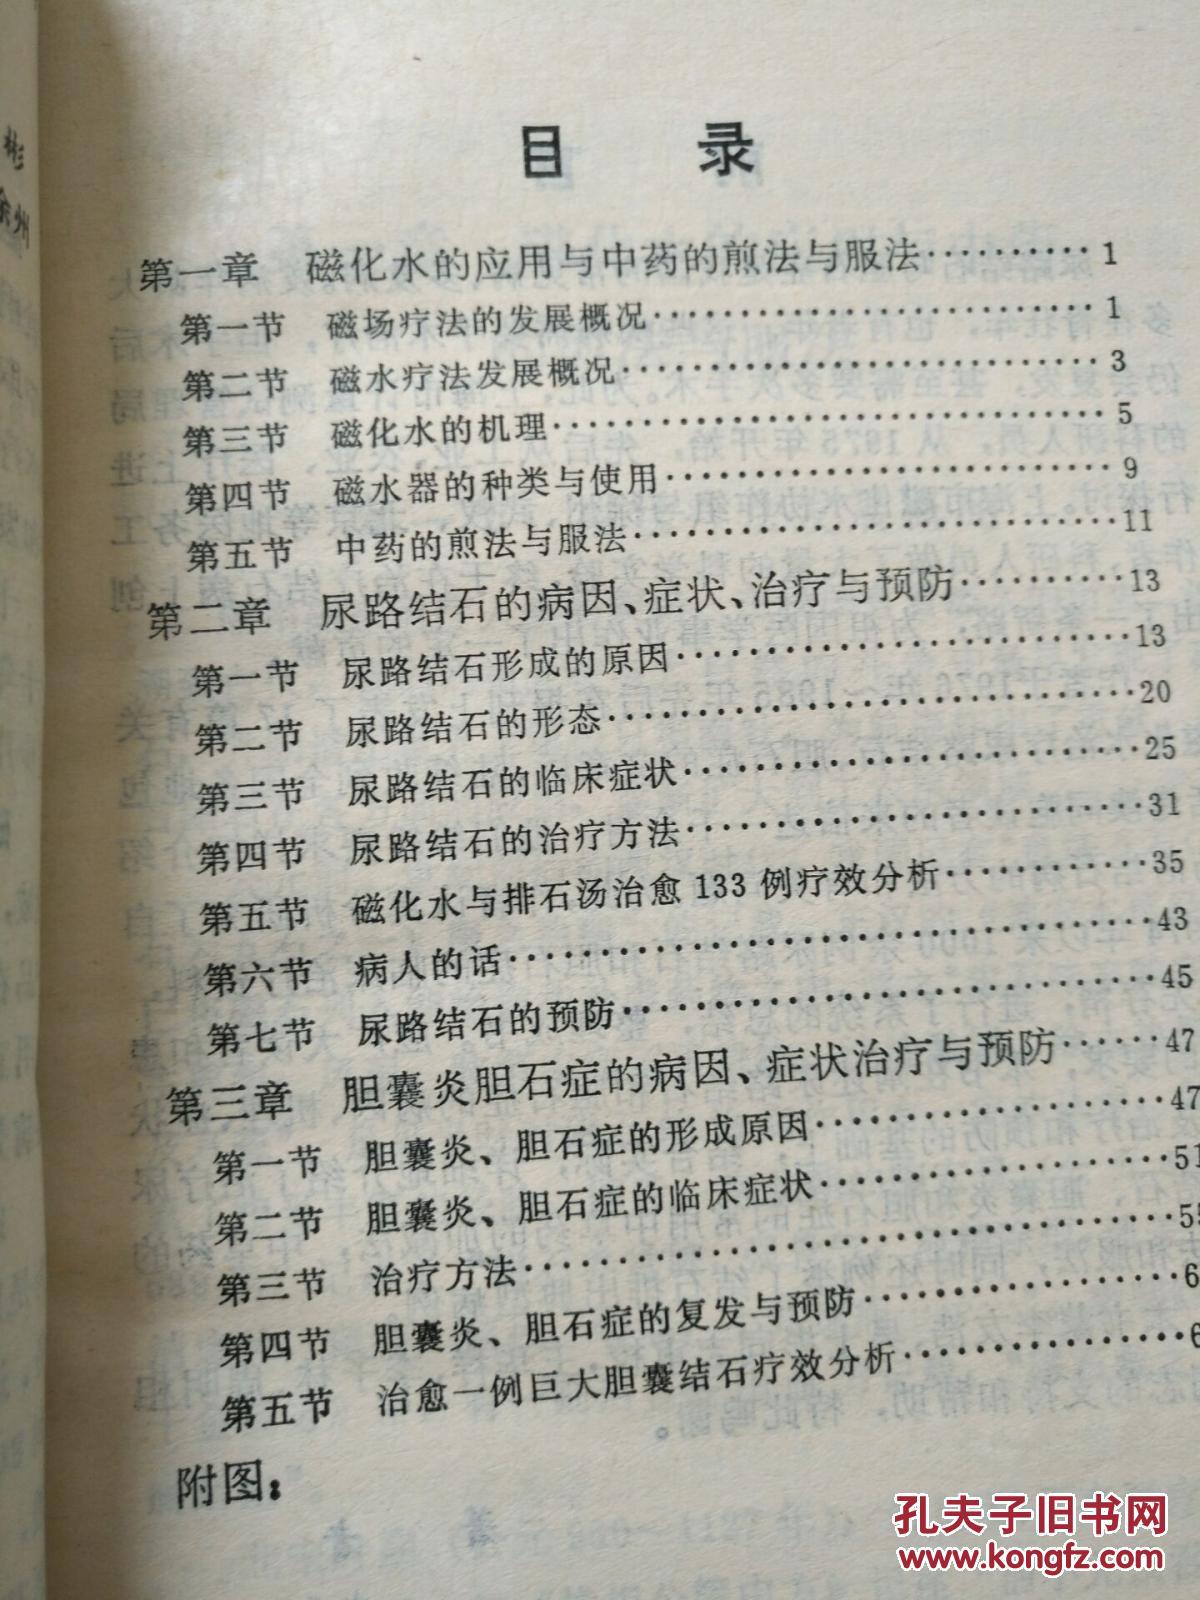 目 录
第一章 磁化水的应用与中药的煎法与服法··········1
第一节 磁场疗法的发展概况··························1
第二节 磁水疗法发展概况····························3
第三节 磁化水的机理································5
第四节 磁水器的种类与使用··························9
第五节 中药的煎法与服法····························11
第二章 尿路结石的病因、症状、治疗与预防··········13
第一节 尿路结石形成的原因··························13
第二节 尿路结石的形态······························20
第三节 尿路结石的临床症状··························25
第四节 尿路结石的治疗方法··························31
第五节 磁化水与排石汤治愈133例疗效分析············35
第六节 病人的话····································43
第七节 尿路结石的预防······························45
第三章 胆囊炎胆石症的病因、症状治疗与预防······47
第一节 胆囊炎、胆石症的形成原因····················47
第二节 胆囊炎、胆石症的临床症状····················51
第三节 治疗方法····································5
第四节 胆囊炎、胆石症的复发与预防··················6
第五节 治愈一例巨大胆囊结石疗效分析················6
附图：
孔夫子旧书网
www.kongfz.com